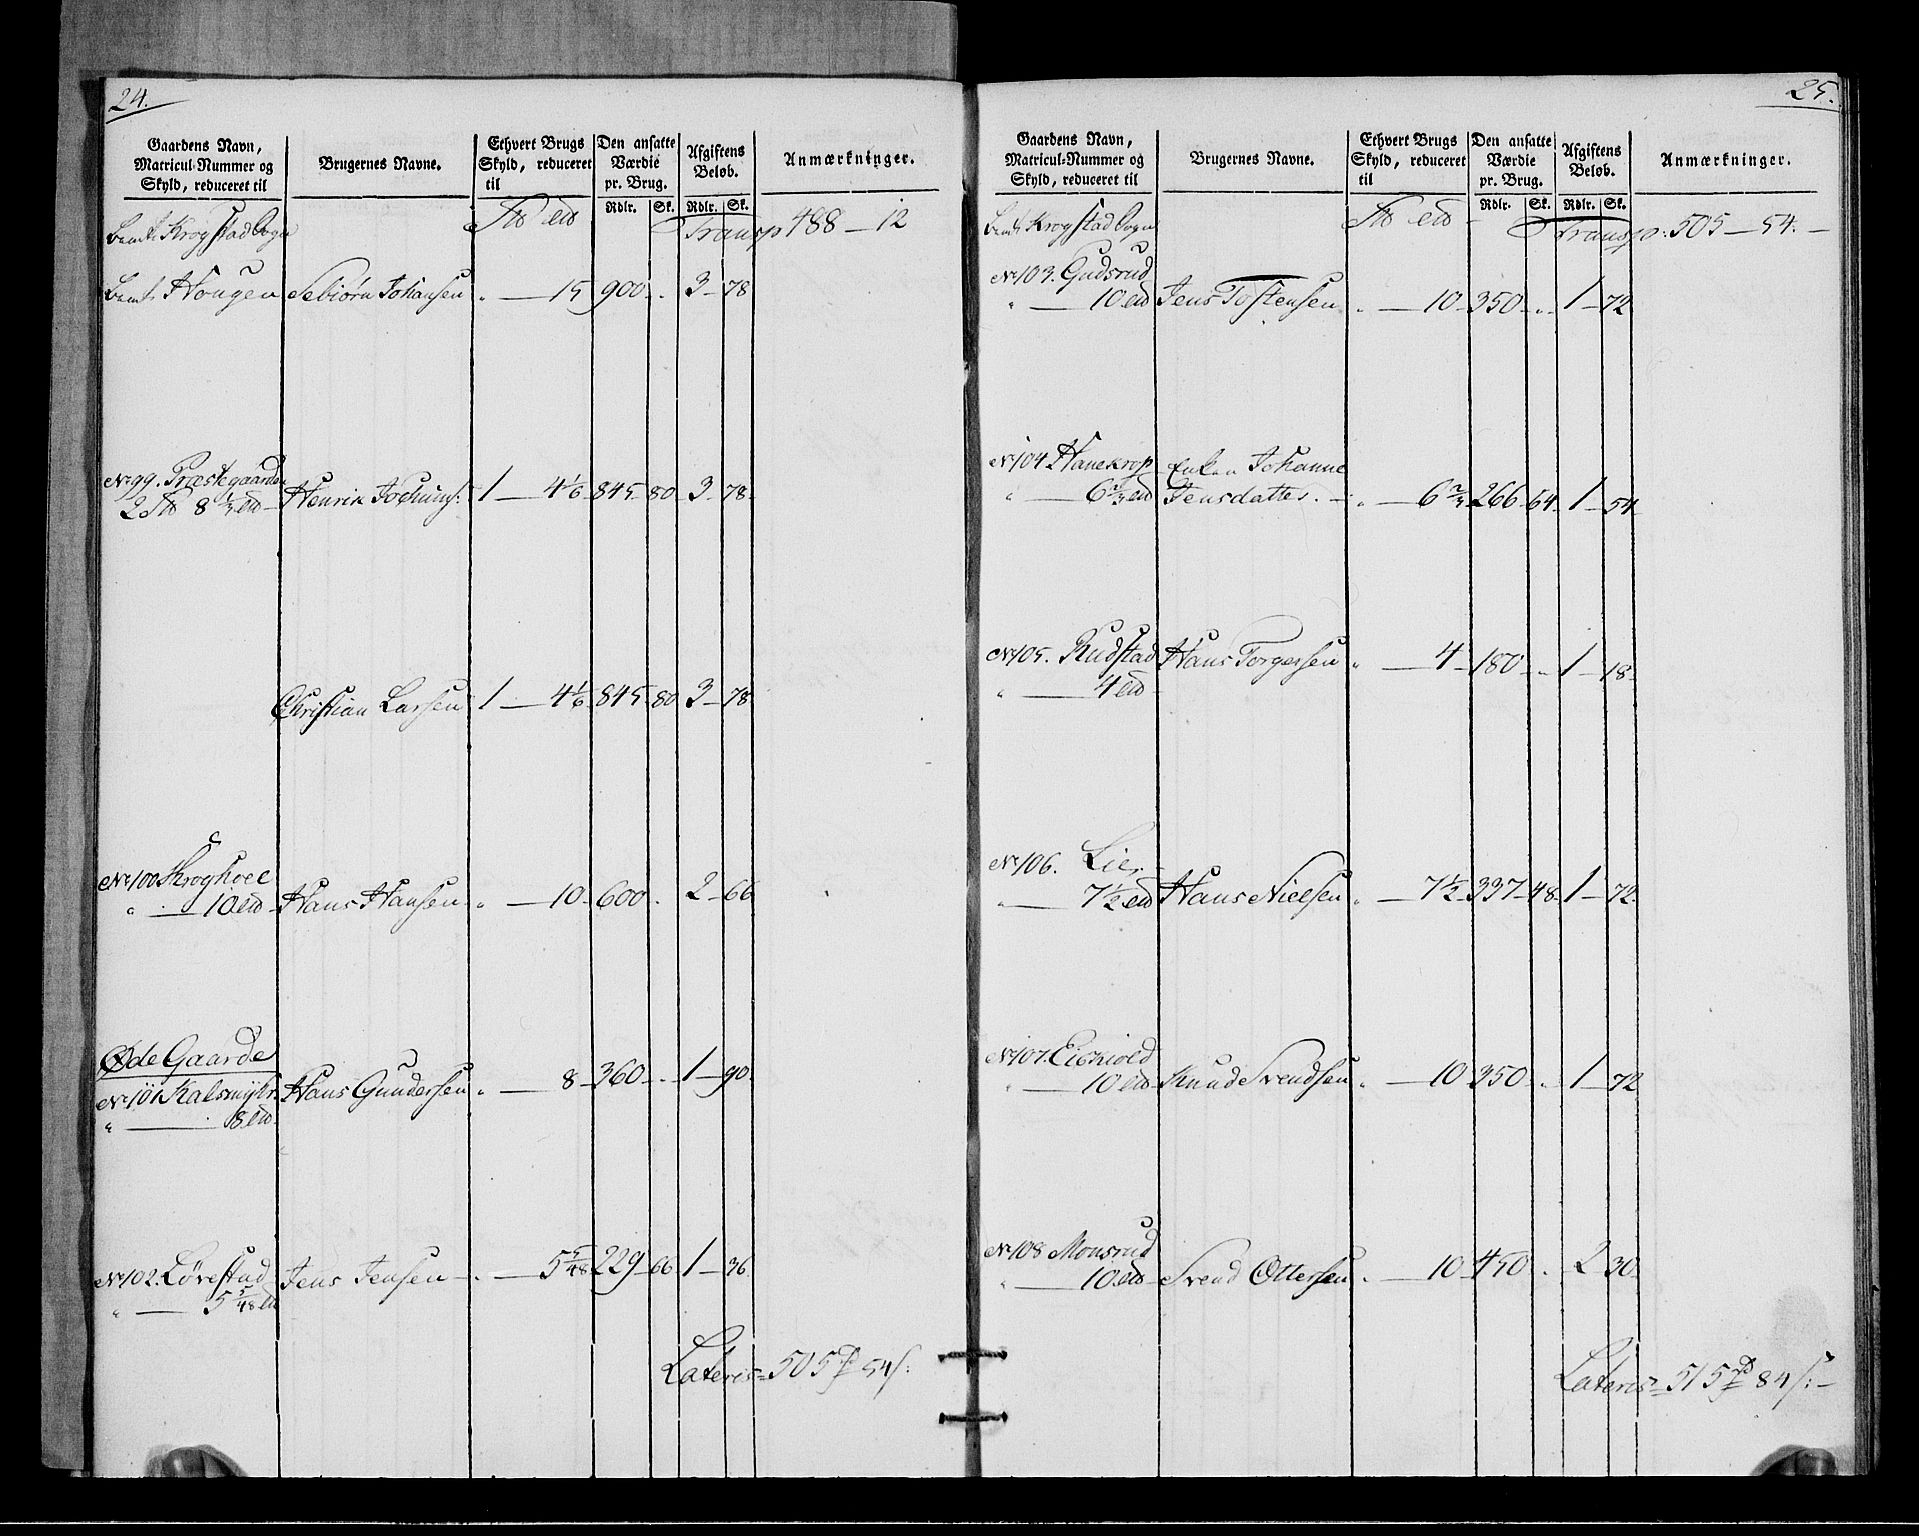 24.
Gaardens Navn, Matricul-Nummer og Skyld, reduceret til
Brugernes Navne.
Ethvert Brugs Skyld, reduceret til
Den ansatte Værdie pr. Brug.
Afgiftens Beløb.
Anmærkninger.
Rdlr. Sk. Rdlr. Sk.
Bemte Krogstad Sogn Transp 488 — 12
Bemte Hougen Sebiørn Johansen „ — 15 900 „ 3 — 78
No 99. Præstegaarden
Henrik Jochums: 1 — 4 1/6 845 - 80 3 — 78
Christian Larsen 1 — 4 1/6 845 - 80 3 — 78
No 100 Kroghoel
„ — 10 Hans Hansen „ — 10 600 „ 2 — 66
Øde Gaarde
No 101 Kalsmyhr Hans Gundersen „ — 8 360 „ 1 — 90
„ — 8
No 102. Løvestad Jens Jensen „ — 5 5/48 229 - 66 1 — 36
„ — 5 5/48
Lateris = 505 54 s:
25.
Gaardens Navn, Matricul-Nummer og Skyld, reduceret til
Brugernes Navne.
Ethvert Brugs Skyld, reduceret til
Den ansatte Værdie pr. Brug.
Afgiftens Beløb.
Anmærkninger.
Rdlr. Sk. Rdlr. Sk.
Bemt Krogstad Sogn Transp: 505 — 54. —
No 103. Gudsrud
„ — 10 Jens Tostensen „ — 10 350 „ 1 — 72
No 104 Hanekrop Enken Johanne
„ — 6 2/3 Jensdatter. „ — 6 2/3 266 - 64 1 — 54
No 105. Rudstad Hans Torgersen „ — 4 180 „ 1 — 18
„ — 4
No 106. Lier
„ — 7 1/2 Hans Nielsen „ — 7 1/2 337 - 48 1 — 72
No 107. Eichiold
„ — 10 Knud Svendsen „ — 10 350 „ 1 — 72
No 108 Monsrud
„ — 10 Svend Ottersen „ — 10 450 „ 2 30
Lateris = 515 84 s: —